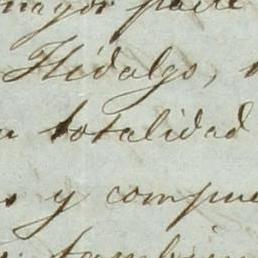 mayor parte
Hidalgo,
totalidad
y compue
tambien